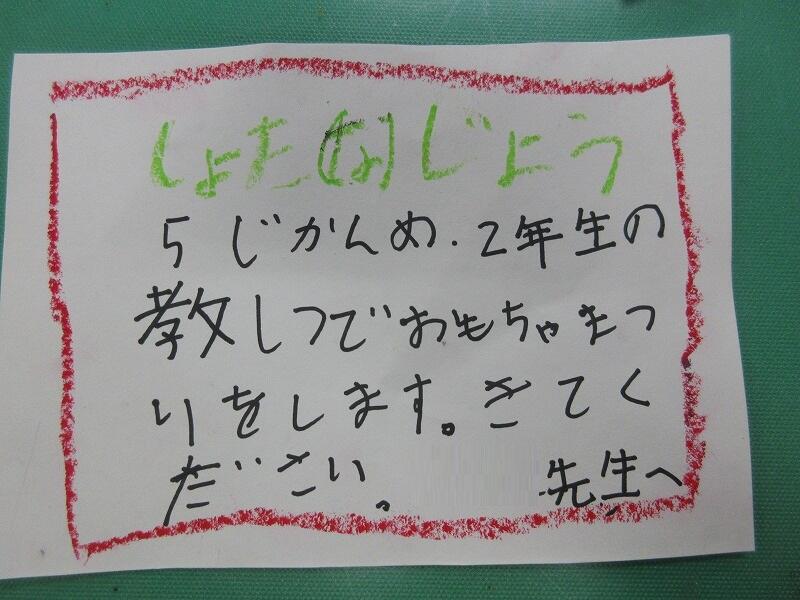 しょた(な)じょう
5じかんめ.2年生の
教しつでおもちゃまつ
りをします。きてく
ださい。 先生へ